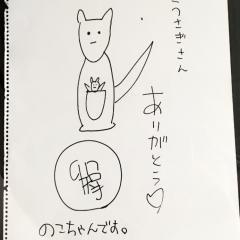 うさぎさん
ありがとう♡
のこちゃんです。